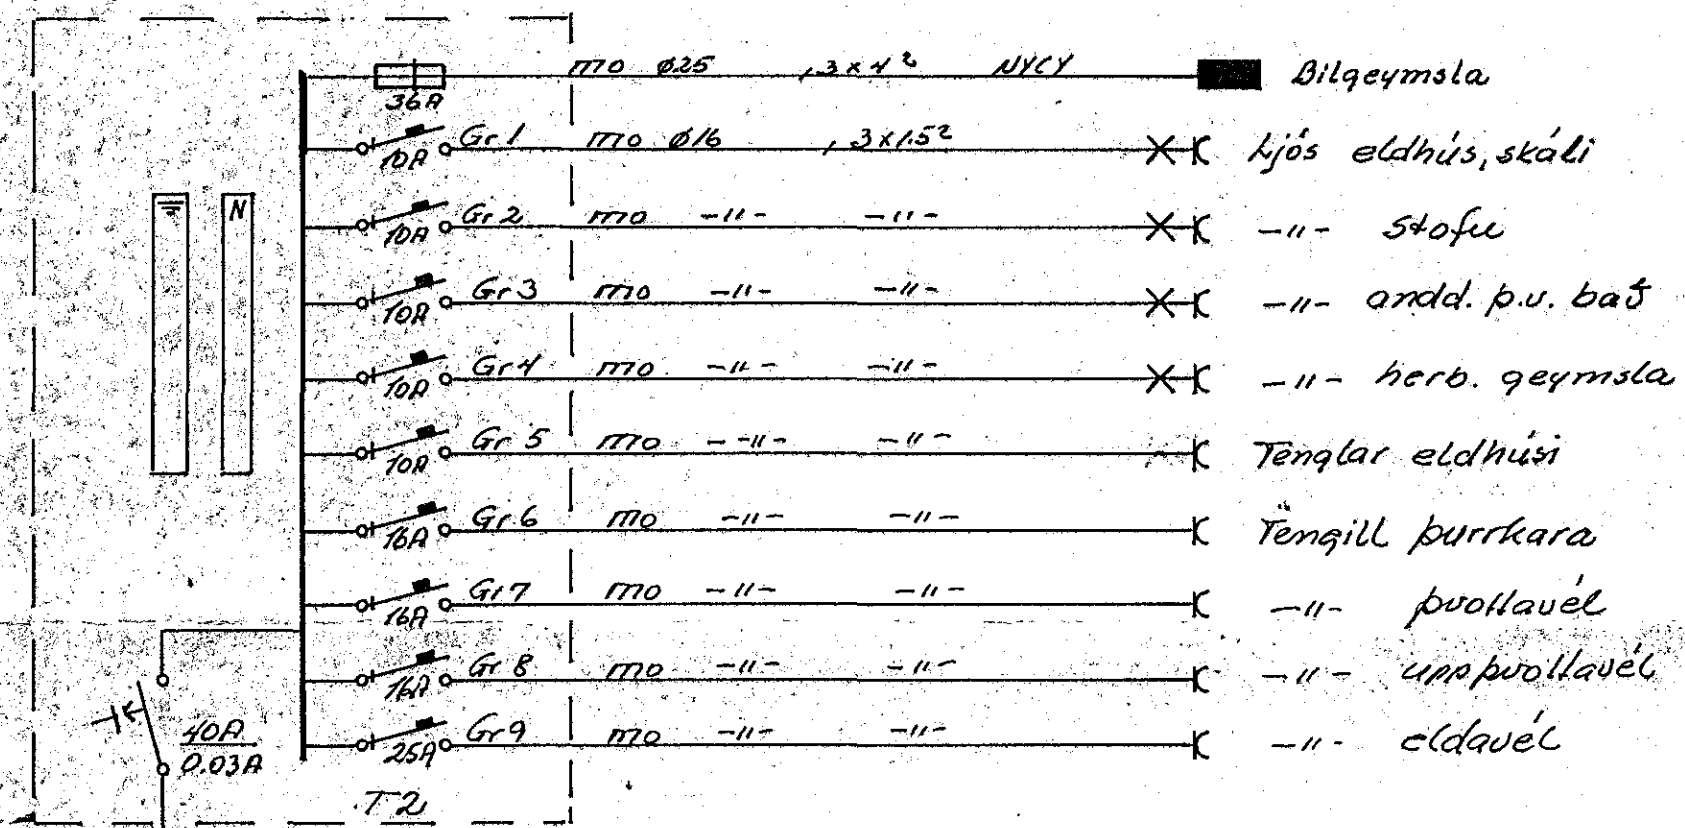 mo ø25 , 3 x 4² NYCY Bilgeymsla
36A
Gr 1 mo ø16 , 3 x 1.5² Ljós eldhús, skáli
10A
N
Gr 2 mo -"- -"- -"- stofu
10A
Gr 3 mo -"- -"- -"- andd. þ.v. bað
10A
Gr 4 mo -"- -"- -"- herb. geymsla
10A
Gr 5 mo -"- -"- Tenglar eldhúsi
10A
Gr 6 mo -"- -"- Tengill þurrkara
16A
Gr 7 mo -"- -"- -"- þvottavél
16A
Gr 8 mo -"- -"- -"- uppþvottavél
16A
Gr 9 mo -"- -"- -"- eldavél
25A
40A
0.03A
T2